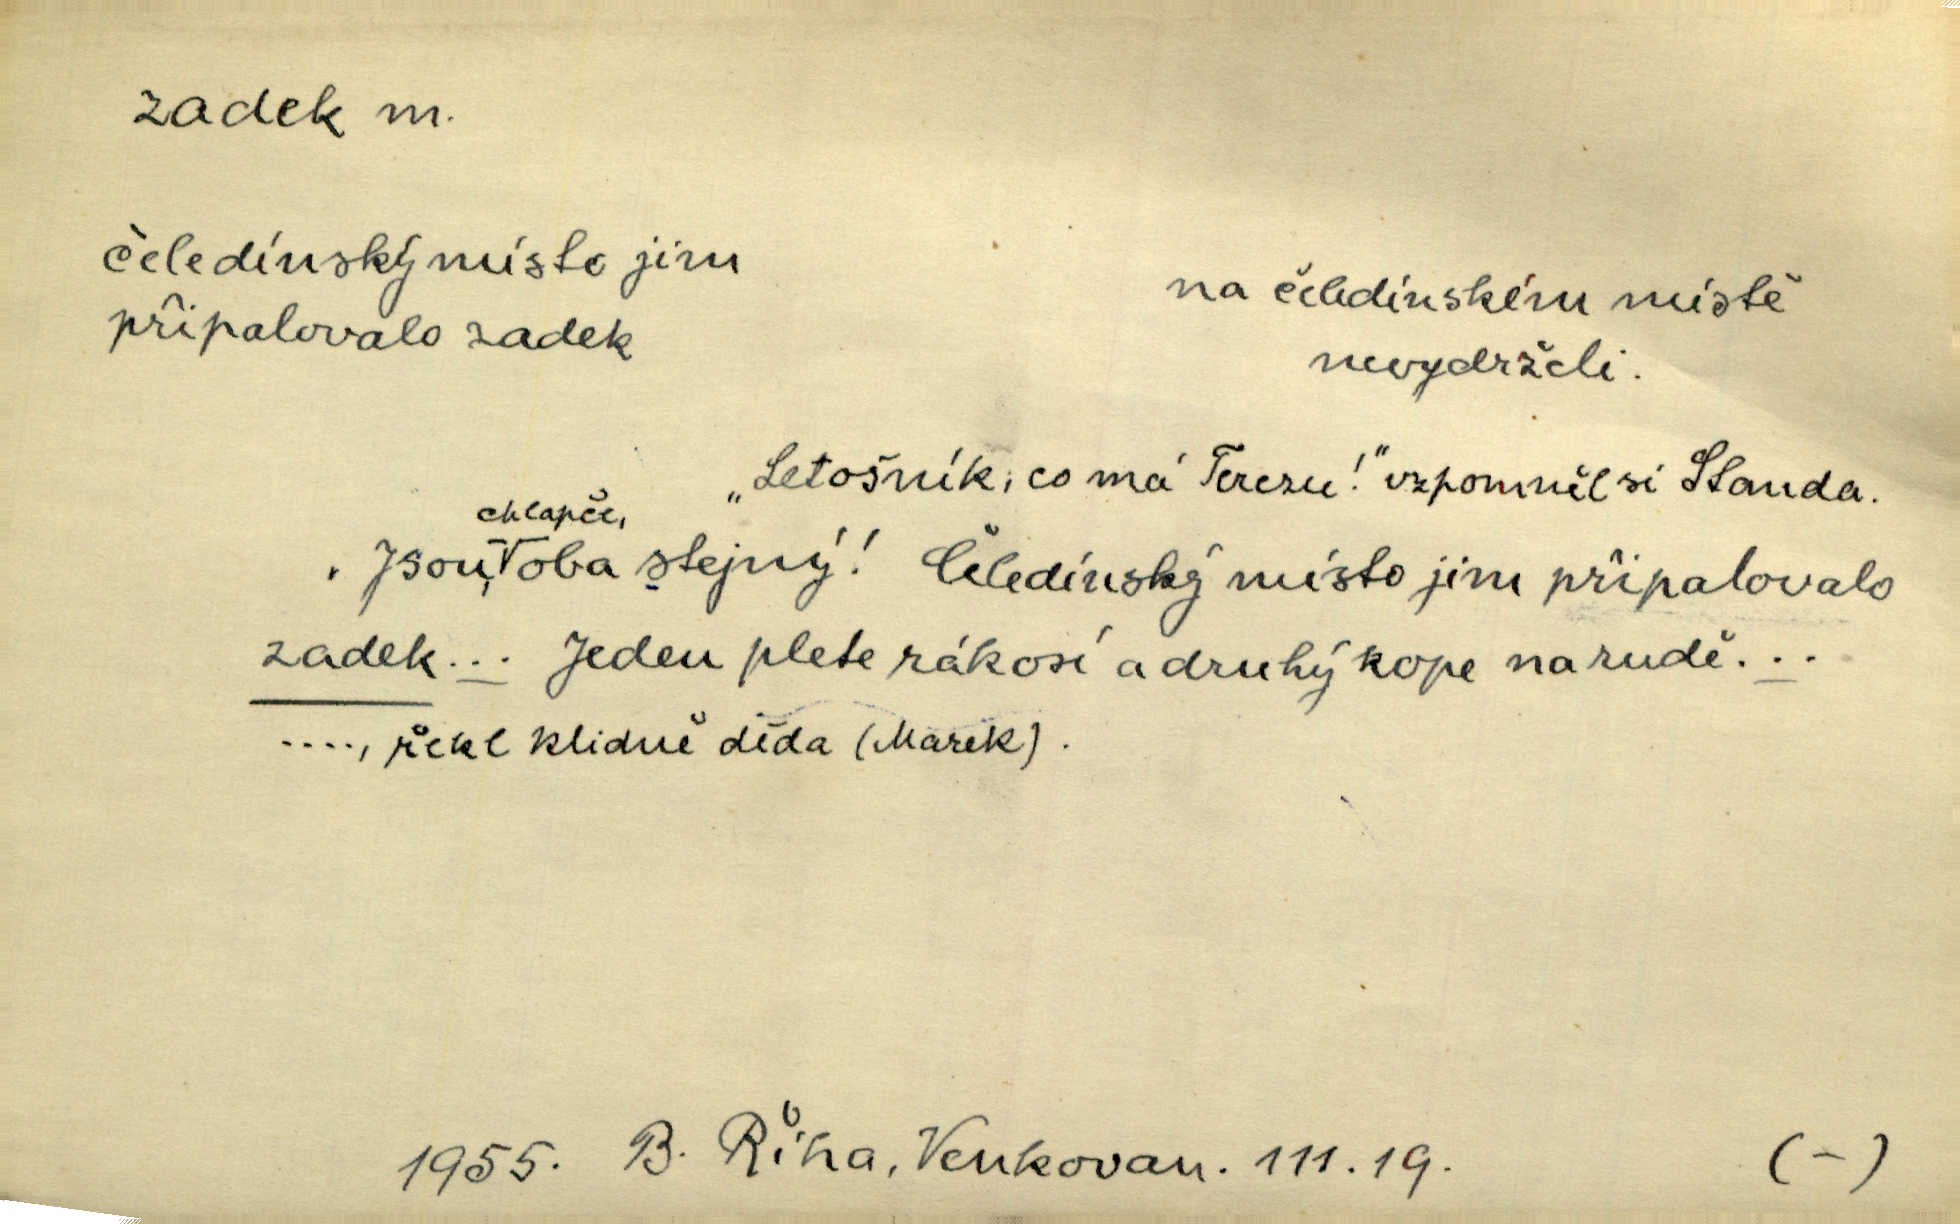 zadek m.
čeledínský místo jim
připalovalo zadek
na čeledínském místě
nevydrželi.
„Letošník, co má Terezu!" vzpomněl si Standa.
chlapče,
. Jsou, oba stejný! Čeledínský místo jim připalovalo
zadek... Jeden plete rákosí a druhý kope na rudě...
...., řekl klidně děda (Marek).
1955. B. Říha, Venkovan. 111. 19. (-)